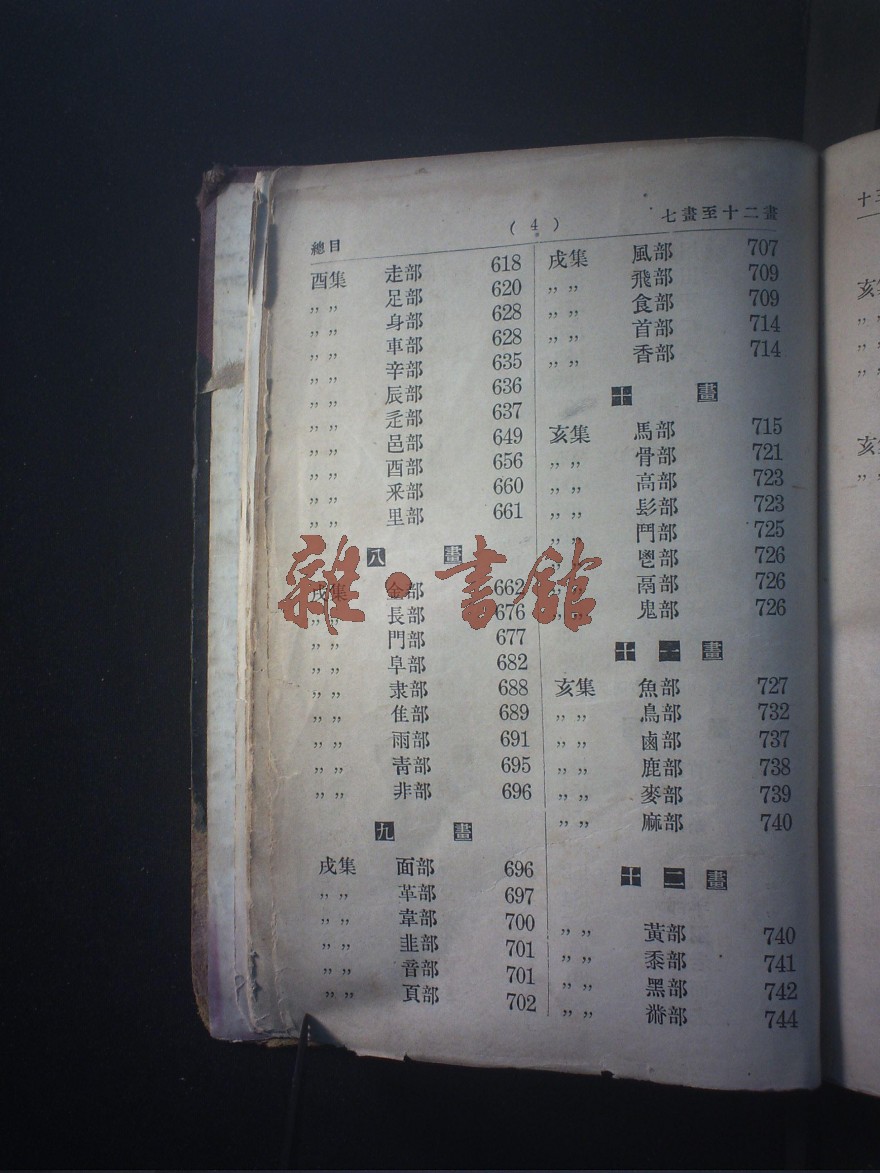 總目
( 4 )
七畫至十二畫
酉集 走部 618
,, ,, 足部 620
,, ,, 身部 628
,, ,, 車部 628
,, ,, 辛部 635
,, ,, 辰部 636
,, ,, 辵部 637
,, ,, 邑部 649
,, ,, 酉部 656
,, ,, 釆部 660
,, ,, 里部 661
八畫
戌集 金部 662
,, ,, 長部 676
,, ,, 門部 677
,, ,, 阜部 682
,, ,, 隶部 688
,, ,, 隹部 689
,, ,, 雨部 691
,, ,, 靑部 695
,, ,, 非部 696
九畫
戌集 面部 696
,, ,, 革部 697
,, ,, 韋部 700
,, ,, 韭部 701
,, ,, 音部 701
,, ,, 頁部 702
戌集 風部 707
,, ,, 飛部 709
,, ,, 食部 709
,, ,, 首部 714
,, ,, 香部 714
十畫
亥集 馬部 715
,, ,, 骨部 721
,, ,, 高部 723
,, ,, 髟部 723
,, ,, 鬥部 725
,, 鬯部 726
,, 鬲部 726
,, ,, 鬼部 726
十一畫
亥集 魚部 727
,, ,, 鳥部 732
,, ,, 鹵部 737
,, ,, 鹿部 738
,, ,, 麥部 739
,, ,, 麻部 740
十二畫
,, ,, 黃部 740
,, ,, 黍部 741
,, ,, 黑部 742
,, ,, 黹部 744
雜·書館